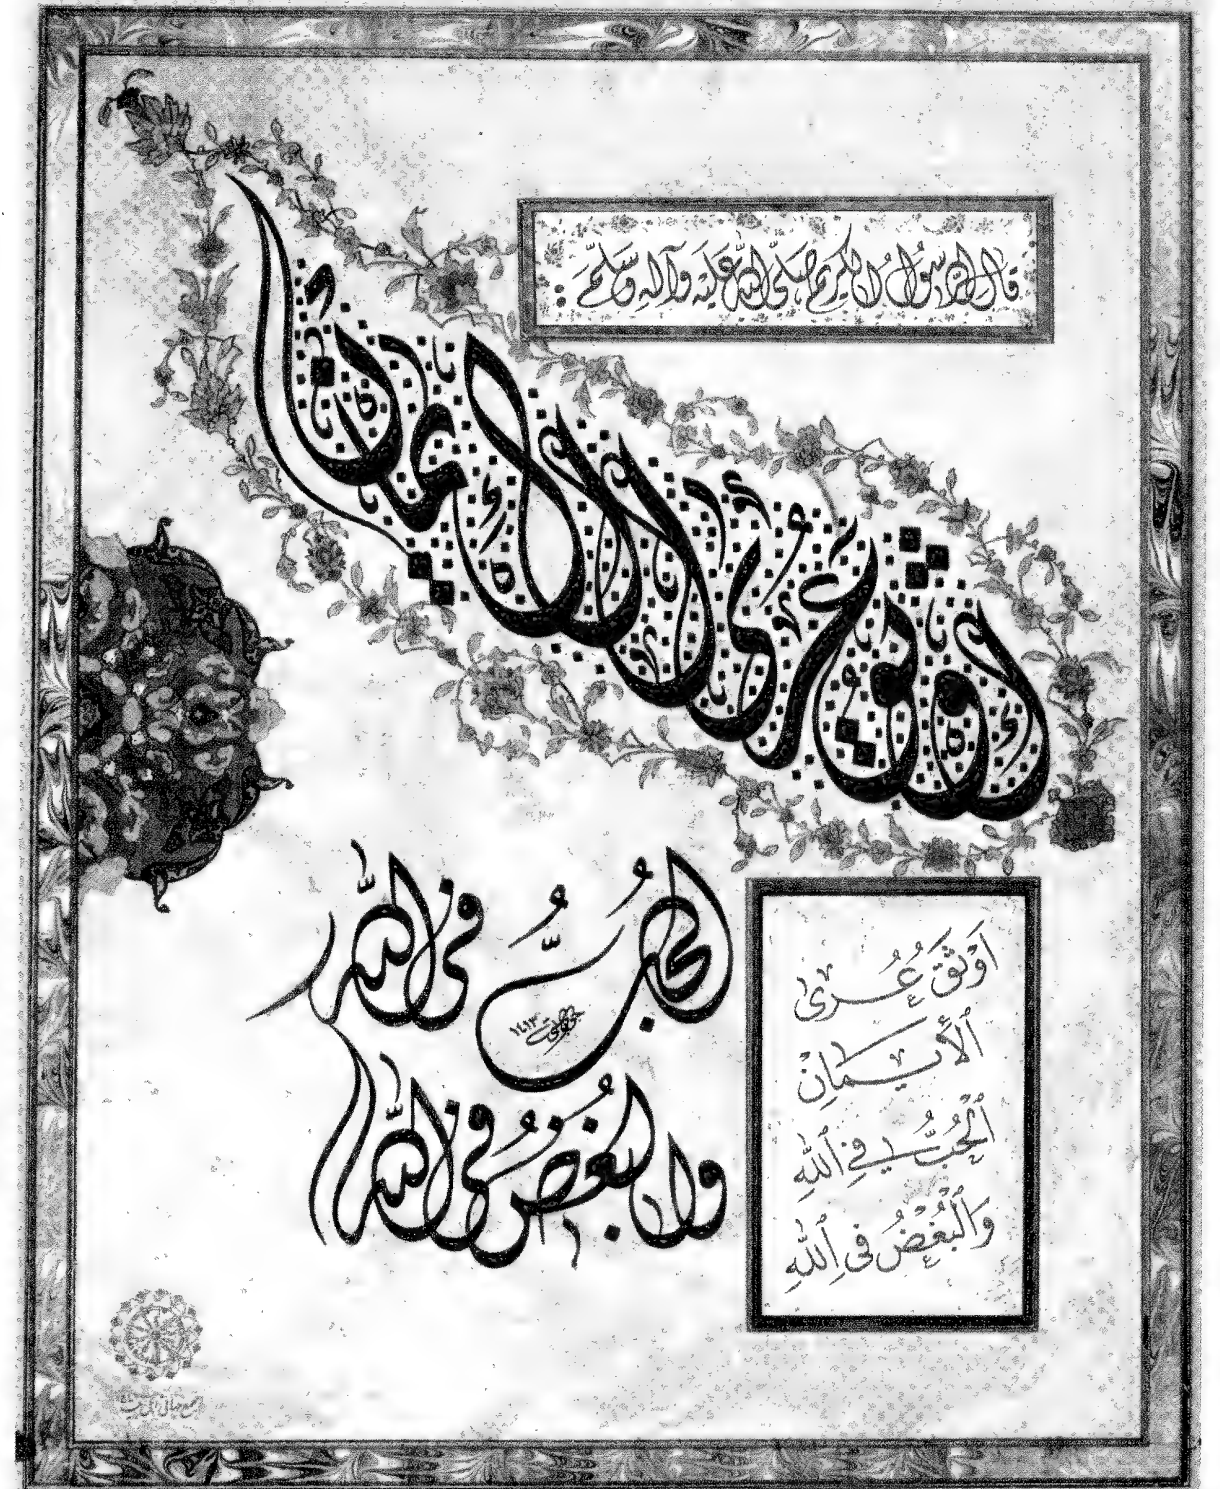 قال الرسول الكريم صلى الله عليه وآله وسلم
اوثق عرى الايمان
الحب فى الله
١٤١٣
والبغض فى الله
اَوْثَقُ عُرى
الْأيمانِ
اَلْحُبُّ فِي اللهِ
وَالْبُغْضُ فى اللهِ